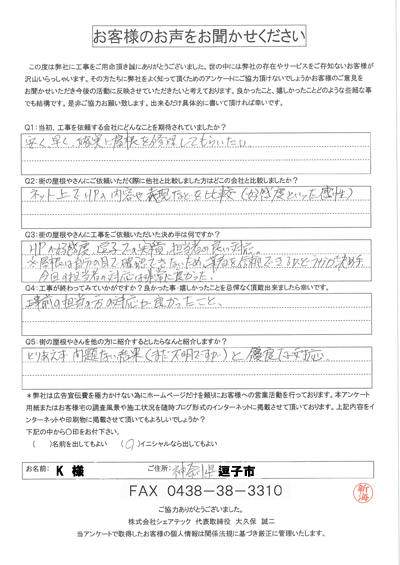 お客様のお声をお聞かせください
この度は弊社に工事をご用命頂き誠にありがとうございました。世の中には弊社の存在やサービスをご存知ないお客様が
沢山いらっしゃいます。その方たちに弊社をよく知って頂くためのアンケートにご協力頂けないでしょうかお客様のご意見を
お聞かせいただき今後の活動に反映させていただきたいと考えております。良かったこと、嬉しかったことどのような些細な事
でも結構です。是非ご協力お願い致します。出来るだけ具体的に書いて頂ければ幸いです。
Q1:当初、工事を依頼する会社にどんなことを期待されていましたか?
安く、早く、確実に屋根を修理してもらいたい
Q2:街の屋根やさんにご依頼いただく際に他社と比較しました方はどこの会社と比較しましたか?
ネット上でHPの内容や表現などを比較(好感度といった感性)
Q3:街の屋根やさんに工事をご依頼いただいた決め手は何ですか?
HPの好感度、逗子での実績、担当者の良い対応。
※屋根は自分の目で確認できないため、業者を信頼できるかどうかが決め手
今回の担当者の対応は非常に良かった。
Q4:工事が終わってみていかがですか?良かった事・嬉しかったことを忌憚なく頂戴出来ましたら幸いです。
事前の担当の方の対応が良かったこと、
Q5:街の屋根やさんを他の方に紹介するとしたらなんと紹介しますか?
とりあえず問題ない結果(まだ不明ですが)と優良な対応。
*弊社は広告宣伝費を極力かけない為にホームページだけを頼りにお客様への営業活動を行っております。本アンケート
用紙またはお客様宅の調査風景や施工状況を随時ブログ形式のインターネットに掲載させて頂いております。上記内容をイ
ンターネットや印刷物に掲載させて頂いてもよろしいでしょうか?
下記の中から〇印をお付下さい。
( )名前を出してもよい (〇)イニシャルなら出してもよい
お名前: K 様 ご住所: 神奈川県 逗子市
FAX 0438-38-3310
新海
ご協力ありがとうございました。
株式会社シェアテック 代表取締役 大久保 誠二
当アンケートで取得したお客様の個人情報は関係法規に基づき厳正に管理いたします。